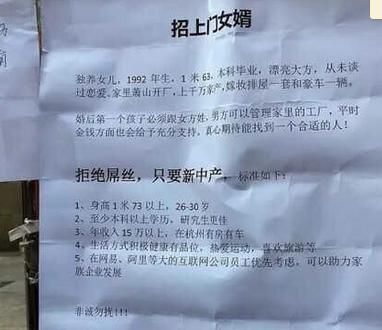 招上门女婿
独养女儿，1992年生，1米63，本科毕业，漂亮大方，从未谈
过恋爱，家里萧山开厂，上千万家产，嫁妆排屋一套和豪车一辆。
婚后第一个孩子必须跟女方姓，男方可以管理家里的工厂，平时
金钱方面也会给予充分支持。真心期待能找到一个合适的人！
拒绝屌丝，只要新中产，标准如下：
1、身高1米73以上，26-30岁
2、至少本科以上学历，研究生更佳
3、年收入15万以上，在杭州有房有车
4、生活方式积极健康有品位，热爱运动，喜欢旅游等
5、在网易、阿里等大的互联网公司员工优先考虑，可以助力家
族企业发展
非诚勿扰!!!